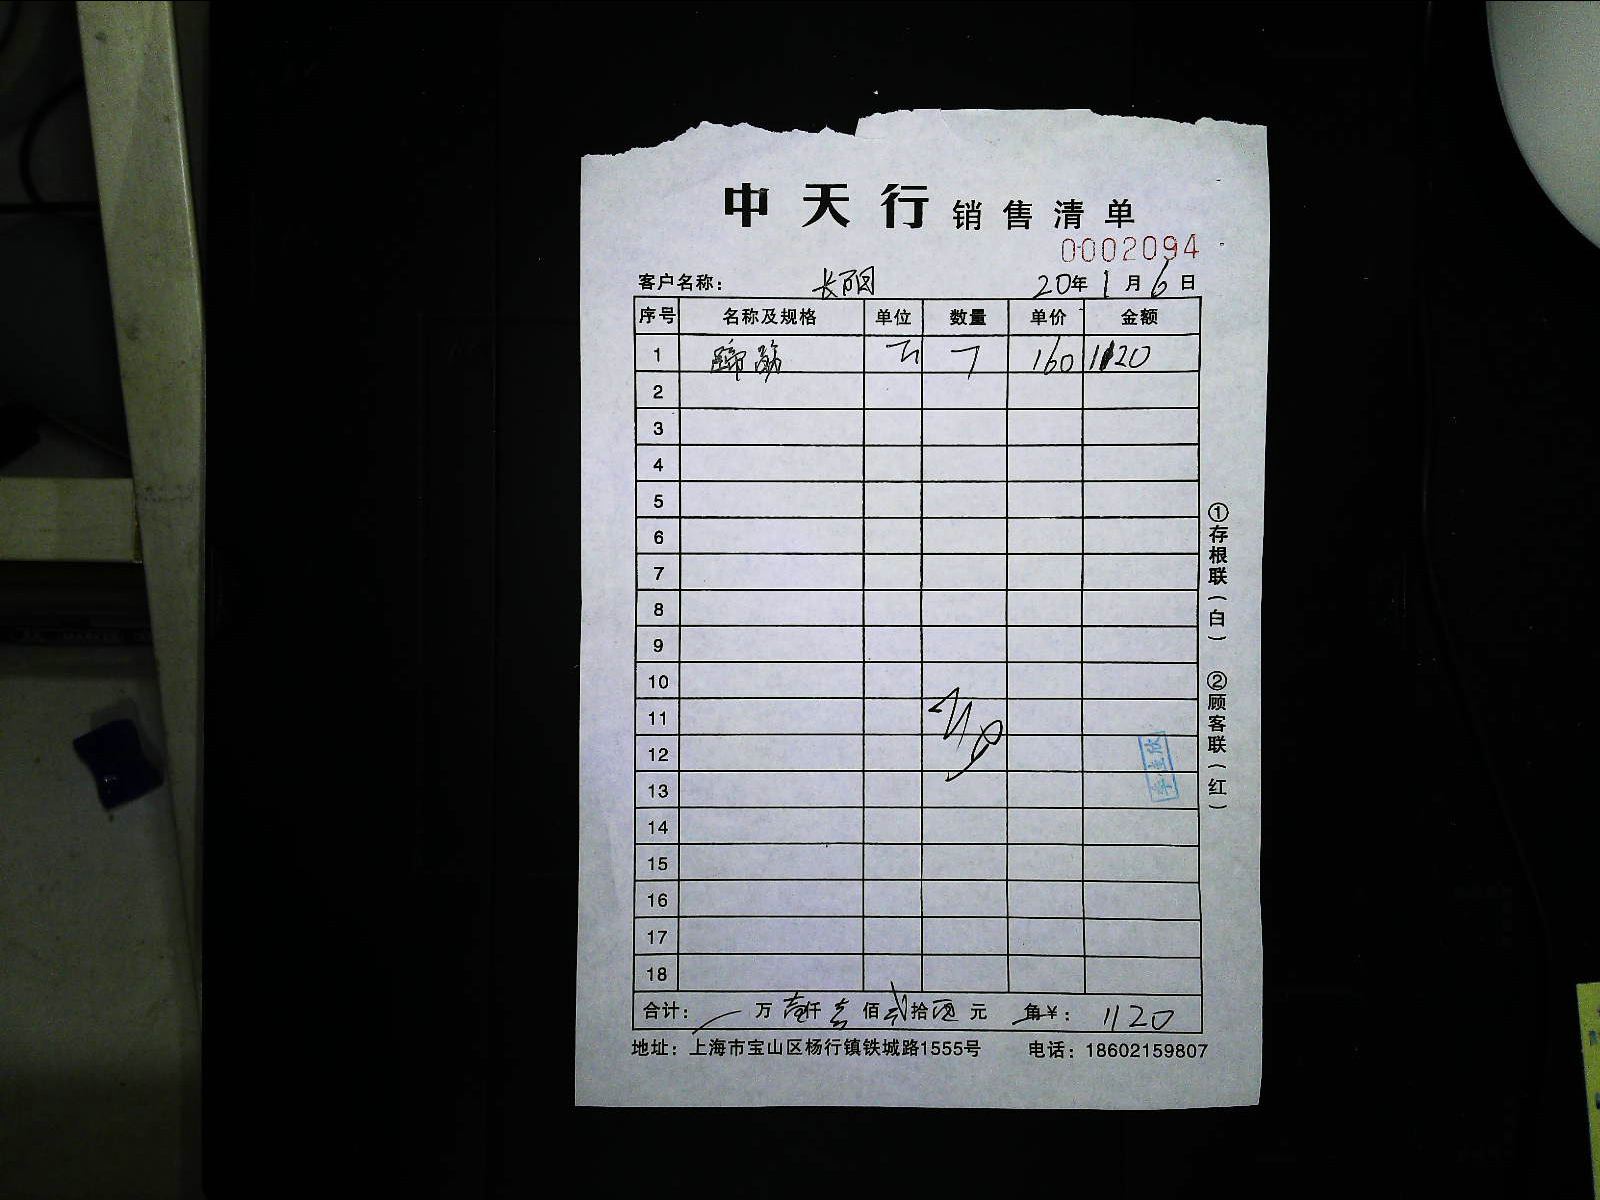 中天行 销售清单
0002094
客户名称： 20年1月6日
序号 名称及规格 单位 数量 单价 金额
1 蹄筋 7 160 1120
2
3
4
5
6
7
8
9
10
11
12
13
14
15
16
17
18
合计： 万壹仟壹佰贰拾 元 角￥： 1120
地址：上海市宝山区杨行镇铁城路1555号 电话：18602159807
①存根联（白） ②顾客联（红）